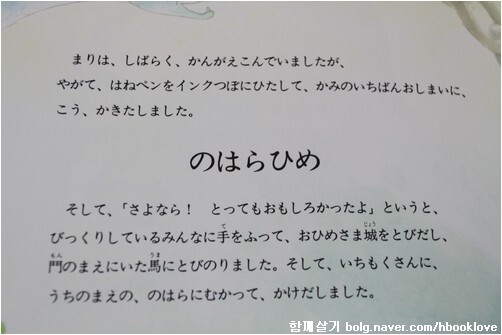 まりは、しばらく、かんがえこんでいましたが、
やがて、はねペンをインクつぼにひたして、かみのいちばんおしまいに、
こう、かきたしました。
のはらひめ
そして、「さよなら！　とってもおもしろかったよ」というと、
びっくりしているみんなに手をふって、おひめさま城をとびだし、
門のまえにいた馬にとびのりました。そして、いちもくさんに、
うちのまえの、のはらにむかって、かけだしました。
함께살기 bolg.naver.com/hbooklove